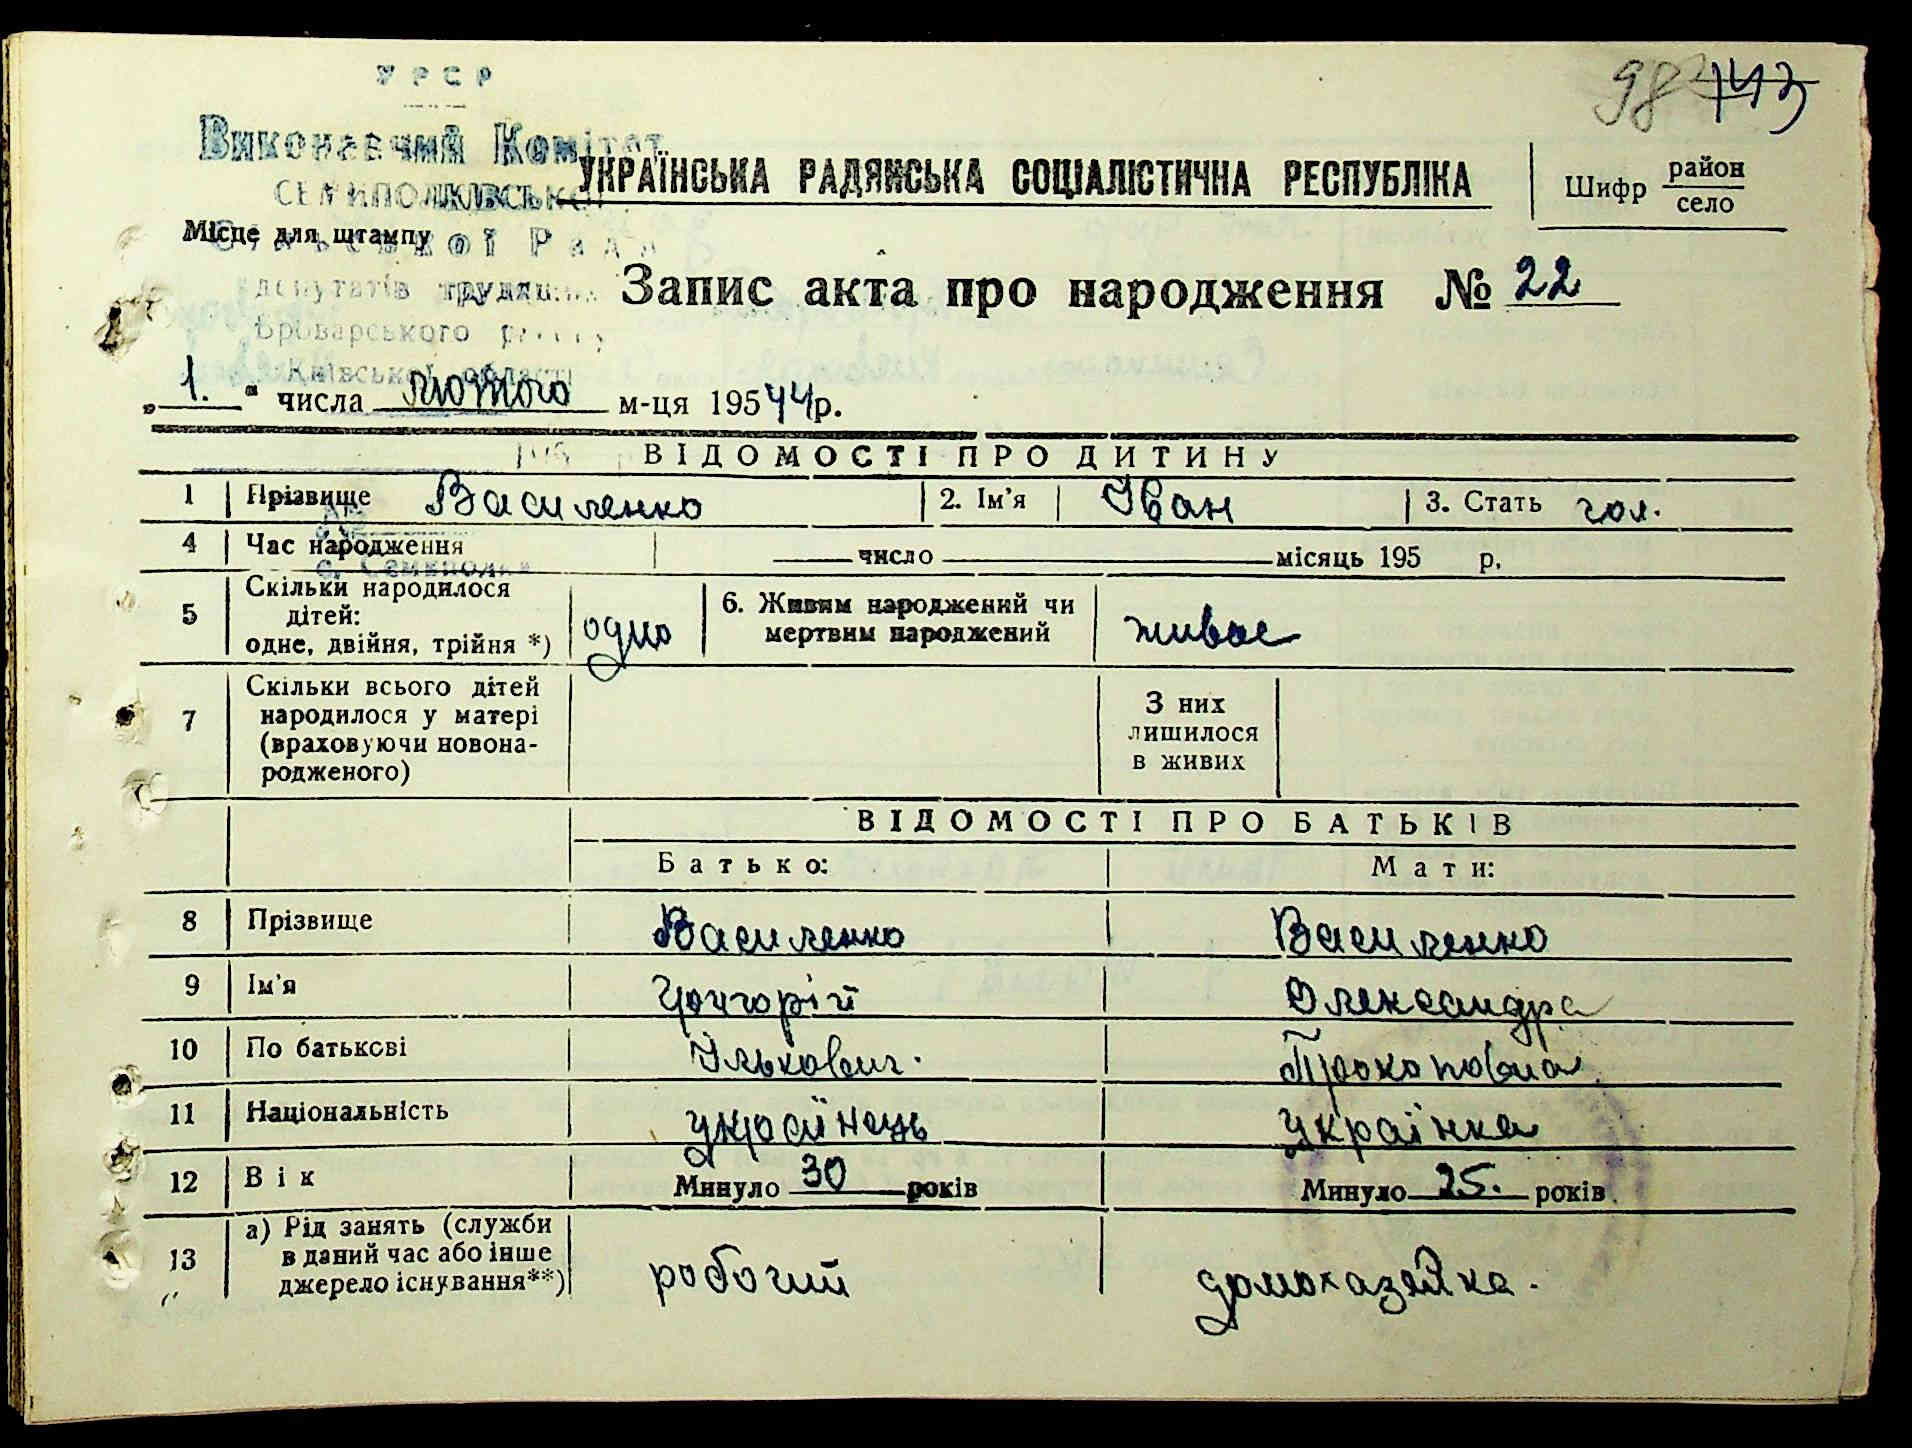 98 143
УРСР
Виконавчий Комітет
УКРАЇНСЬКА РАДЯНСЬКА СОЦІАЛІСТИЧНА РЕСПУБЛІКА
Шифр район
село
СЕМИПОЛКІВСЬКОЇ
Місце для штампу
Сільської Ради
депутатів трудящих
Запис акта про народження № 22
Броварського району
Київської області
„1." числа лютого м-ця 195 44р.
195
ВІДОМОСТІ ПРО ДИТИНУ
1 Прізвище Василенко 2. Ім'я Іван 3. Стать чол.
4 Час народження число місяць 195 р.
с. Семиполки
5 Скільки народилося дітей: одне, двійня, трійня *) одно 6. Живим народжений чи мертвим народжений живое
7 Скільки всього дітей народилося у матері (враховуючи новона-родженого) З них лишилося в живих
ВІДОМОСТІ ПРО БАТЬКІВ
Батько: Мати:
8 Прізвище Василенко Василенко
9 Ім'я Григорій Олександра
10 По батькові Ількович. Прокоповна
11 Національність українець українка
12 Вік Минуло 30 років Минуло 25. років
13 а) Рід занять (служби в даний час або інше джерело існування**) робочий домохазяйка.